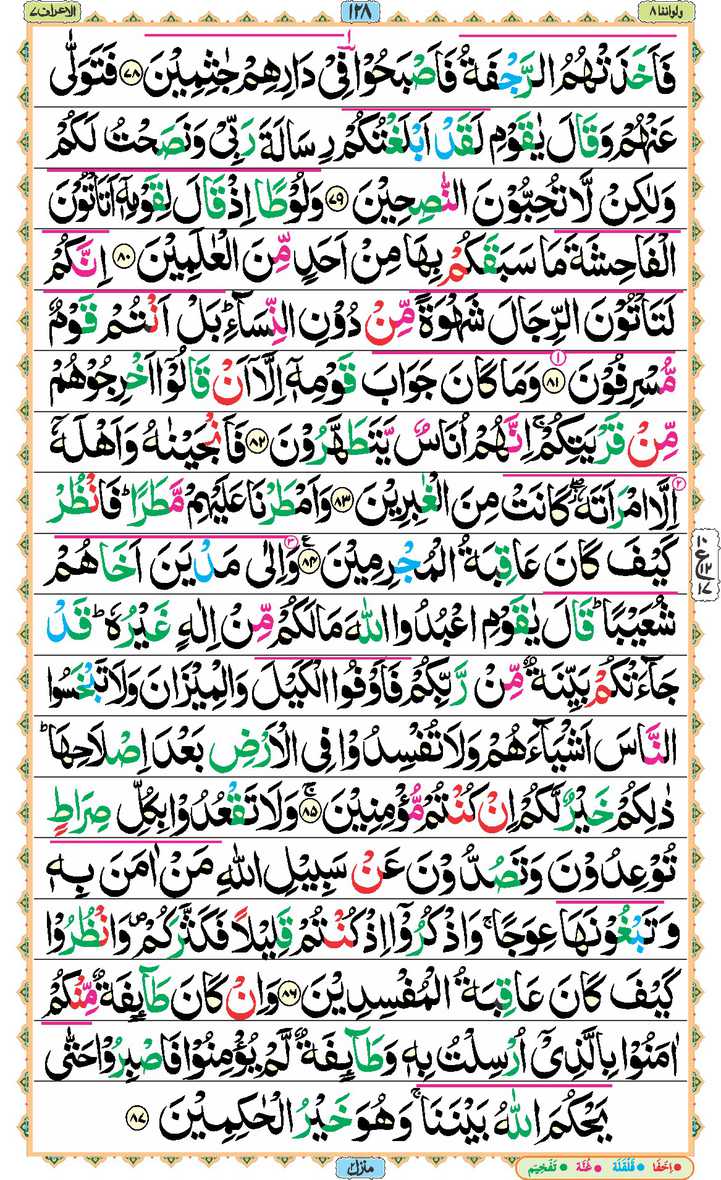 ولواننا ٨
١٢٨
الاعراف ٧
فَاَخَذَتْهُمُ الرَّجْفَةُ فَاَصْبَحُوْا فِیْ دَارِهِمْ جٰثِمِیْنَ ﴿۷۸﴾ فَتَوَلّٰی
عَنْهُمْ وَقَالَ یٰقَوْمِ لَقَدْ اَبْلَغْتُكُمْ رِسَالَةَ رَبِّیْ وَنَصَحْتُ لَكُمْ
وَلٰكِنْ لَّا تُحِبُّوْنَ النّٰصِحِیْنَ ﴿۷۹﴾ وَلُوْطًا اِذْ قَالَ لِقَوْمِهٖۤ اَتَاْتُوْنَ
الْفَاحِشَةَ مَا سَبَقَكُمْ بِهَا مِنْ اَحَدٍ مِّنَ الْعٰلَمِیْنَ ﴿۸۰﴾ اِنَّكُمْ
لَتَاْتُوْنَ الرِّجَالَ شَهْوَةً مِّنْ دُوْنِ النِّسَآءِ ؕ بَلْ اَنْتُمْ قَوْمٌ
مُّسْرِفُوْنَ ﴿۸۱﴾ وَمَا كَانَ جَوَابَ قَوْمِهٖۤ اِلَّاۤ اَنْ قَالُوْۤا اَخْرِجُوْهُمْ
مِّنْ قَرْیَتِكُمْ ۚ اِنَّهُمْ اُنَاسٌ یَّتَطَهَّرُوْنَ ﴿۸۲﴾ فَاَنْجَیْنٰهُ وَاَهْلَهٗۤ
اِلَّا امْرَاَتَهٗ ۖؗ كَانَتْ مِنَ الْغٰبِرِیْنَ ﴿۸۳﴾ وَاَمْطَرْنَا عَلَیْهِمْ مَّطَرًا ؕ فَانْظُرْ
كَیْفَ كَانَ عَاقِبَةُ الْمُجْرِمِیْنَ ﴿۸۴﴾ وَاِلٰی مَدْیَنَ اَخَاهُمْ
شُعَیْبًا ؕ قَالَ یٰقَوْمِ اعْبُدُوا اللّٰهَ مَا لَكُمْ مِّنْ اِلٰهٍ غَیْرُهٗ ؕ قَدْ
جَآءَتْكُمْ بَیِّنَةٌ مِّنْ رَّبِّكُمْ فَاَوْفُوا الْكَیْلَ وَالْمِیْزَانَ وَلَا تَبْخَسُوا
النَّاسَ اَشْیَآءَهُمْ وَلَا تُفْسِدُوْا فِی الْاَرْضِ بَعْدَ اِصْلَاحِهَا ؕ
ذٰلِكُمْ خَیْرٌ لَّكُمْ اِنْ كُنْتُمْ مُّؤْمِنِیْنَ ﴿۸۵﴾ۚ وَلَا تَقْعُدُوْا بِكُلِّ صِرَاطٍ
تُوْعِدُوْنَ وَتَصُدُّوْنَ عَنْ سَبِیْلِ اللّٰهِ مَنْ اٰمَنَ بِهٖ
وَتَبْغُوْنَهَا عِوَجًا ۚ وَاذْكُرُوْۤا اِذْ كُنْتُمْ قَلِیْلًا فَكَثَّرَكُمْ ۪ وَانْظُرُوْا
كَیْفَ كَانَ عَاقِبَةُ الْمُفْسِدِیْنَ ﴿۸۶﴾ وَاِنْ كَانَ طَآىِٕفَةٌ مِّنْكُمْ
اٰمَنُوْا بِالَّذِیْۤ اُرْسِلْتُ بِهٖ وَطَآىِٕفَةٌ لَّمْ یُؤْمِنُوْا فَاصْبِرُوْا حَتّٰی
یَحْكُمَ اللّٰهُ بَیْنَنَا ۚ وَهُوَ خَیْرُ الْحٰكِمِیْنَ ﴿۸۷﴾
منزل ٢
اِخْفَا قَلْقَلَة غُنَّة تَفْخِیْم